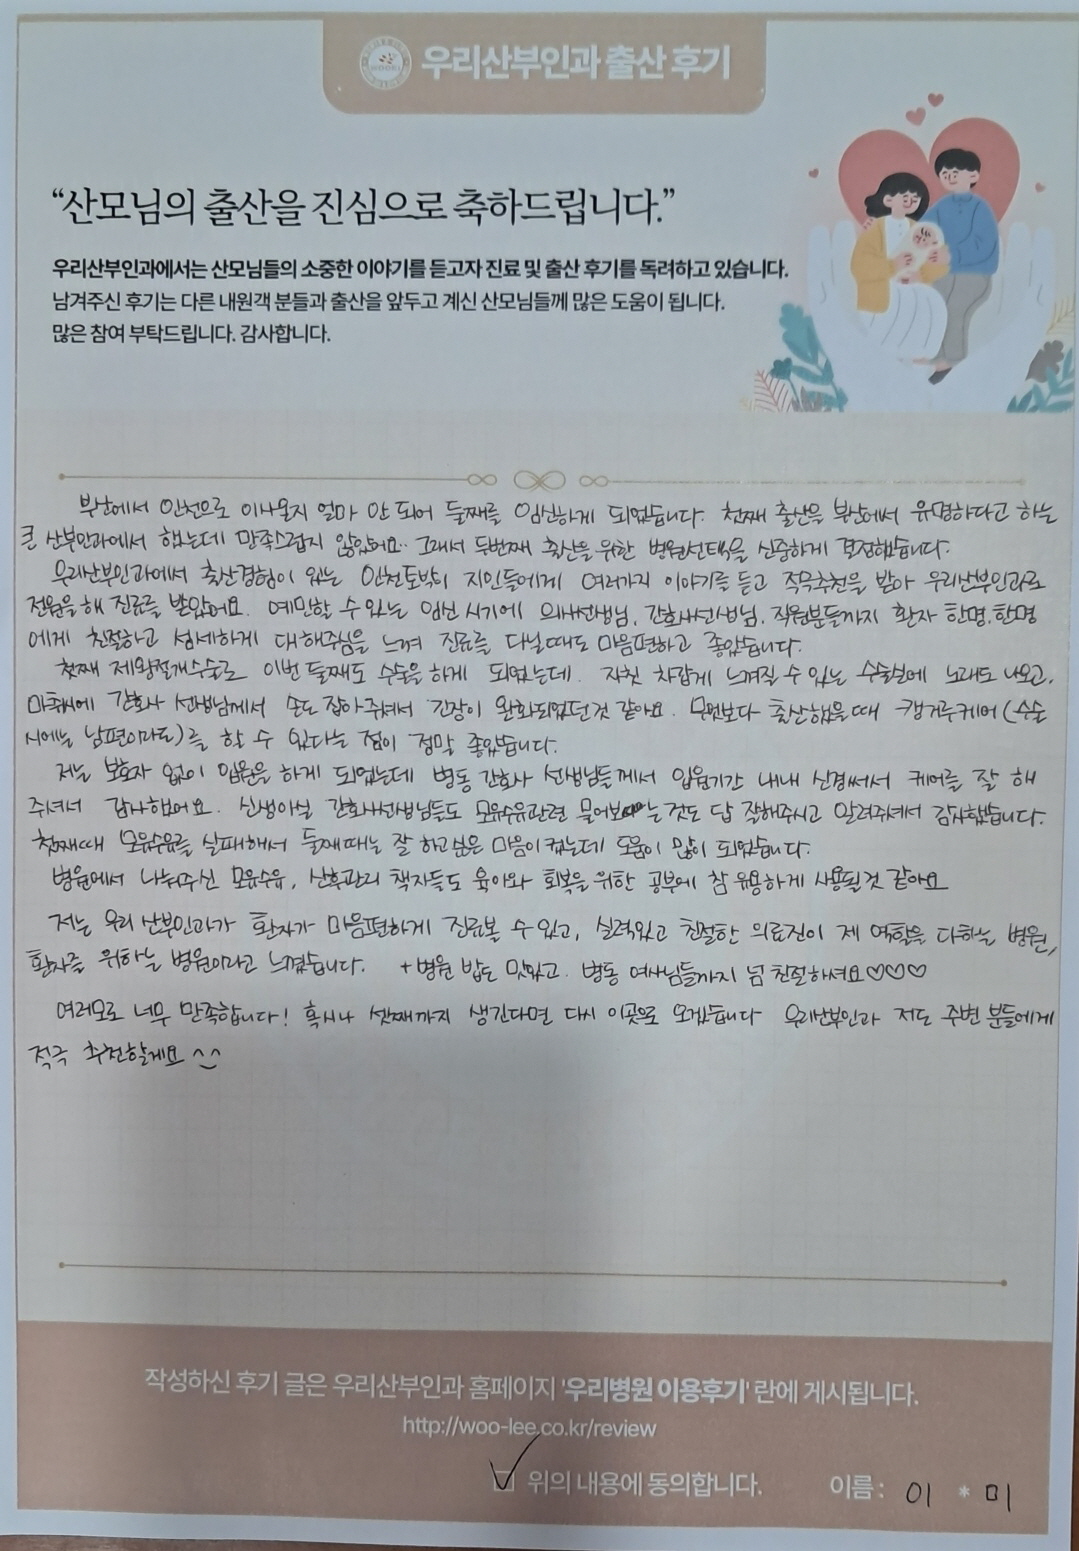 우리산부인과 출산 후기
“산모님의 출산을 진심으로 축하드립니다.”
우리산부인과에서는 산모님들의 소중한 이야기를 듣고자 진료 및 출산 후기를 독려하고 있습니다.
남겨주신 후기는 다른 내원객 분들과 출산을 앞두고 계신 산모님들께 많은 도움이 됩니다.
많은 참여 부탁드립니다. 감사합니다.
부산에서 인천으로 이사온지 얼마 안 되어 둘째를 임신하게 되었습니다. 첫째 출산을 부산에서 유명하다고 하는
큰 산부인과에서 했는데 만족스럽지 않았어요.. 그래서 두번째 출산을 위한 병원선택을 신중하게 결정했습니다.
우리산부인과에서 출산경험이 있는 인천토박이 지인들에게 여러가지 이야기를 듣고 적극추천을 받아 우리산부인과로
전원을 해 진료를 받았어요. 예민할 수 있는 임신 시기에 의사선생님, 간호사선생님, 직원분들까지 환자 한명, 한명
에게 친절하고 섬세하게 대해주심을 느껴 진료를 다닐때도 마음편하고 좋았습니다.
첫째 제왕절개수술로 이번 둘째도 수술을 하게 되었는데. 자칫 차갑게 느껴질 수 있는 수술실에 노래도 나오고,
마취시에 간호사 선생님께서 손도 잡아주셔서 긴장이 완화되었던것 같아요. 무엇보다 출산했을때 캥거루케어(수술
시에는 남편이라도)를 할 수 있다는 점이 정말 좋았습니다.
저는 보호자 없이 입원을 하게 되었는데 병동 간호사 선생님들께서 입원기간 내내 신경써서 케어를 잘 해
주셔서 감사했어요. 신생아실 간호사선생님들도 모유수유관련 물어보는 것도 답 잘해주시고 알려주셔서 감사했습니다.
첫째때 모유수유를 실패해서 둘째때는 잘 하고싶은 마음이 컸는데 도움이 많이 되었습니다.
병원에서 나눠주신 모유수유, 산후관리 책자들도 육아와 회복을 위한 공부에 참 유용하게 사용될것 같아요
저는 우리 산부인과가 환자가 마음편하게 진료볼 수 있고, 실력있고 친절한 의료진이 제 역할을 다하는 병원,
환자를 위하는 병원이라고 느꼈습니다. +병원 밥도 맛있고. 병동 여사님들까지 넘 친절하셔요♡♡♡
여러모로 너무 만족합니다! 혹시나 셋째까지 생긴다면 다시 이곳으로 오겠습니다 우리산부인과 저도 주변 분들에게
적극 추천할게요 ^^
작성하신 후기 글은 우리산부인과 홈페이지 '우리병원 이용후기' 란에 게시됩니다.
http://woo-lee.co.kr/review
위의 내용에 동의합니다. 이름 : 이 * 미